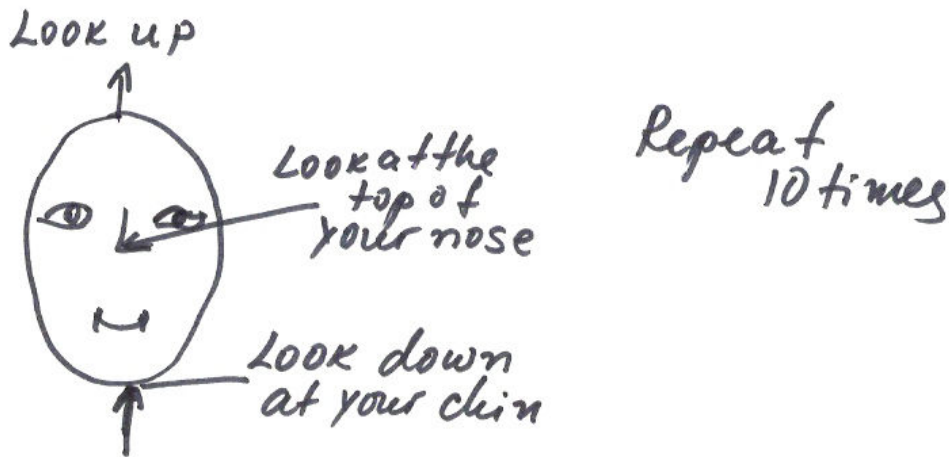 Look up
Look at the
top of
your nose
Repeat
10 times
Look down
at your chin